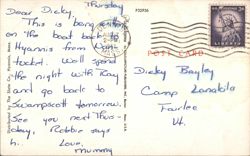 Thursday
Dear Dicky,
This is being written
on the boat back to
Hyannis from Nan-
tucket. We'll spend
the night with Kay
and go back to
Swampscott tomorrow.
See you next Thurs
day, Robbie says
hi. Love,
Mummy
P32936
POST CARD
LIBERTY
Dicky Bayley
Camp Lanakila
Fairlee
Vt.